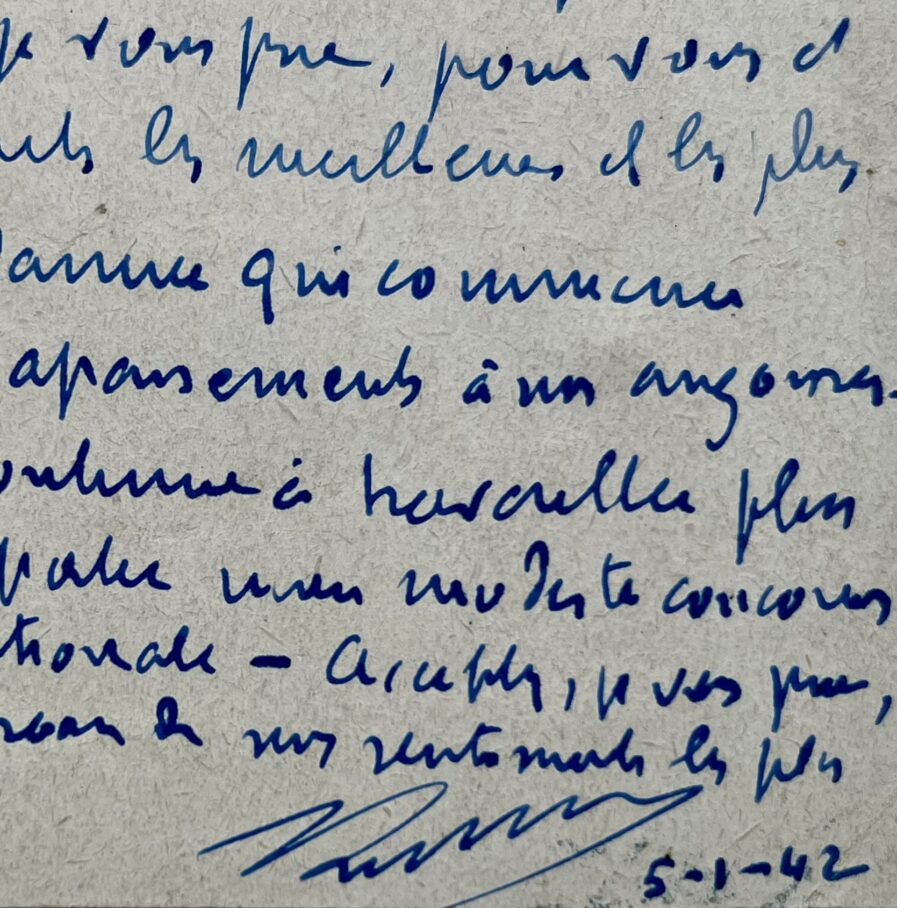 je vous prie, pour vous et
les meilleurs et les plus
l'année qui commence
apaisements à nos angoisses
continue à travailler plus
mon modeste concours
nationale - Acceptez, je vous prie,
de nos sentiments les plus
5-1-42